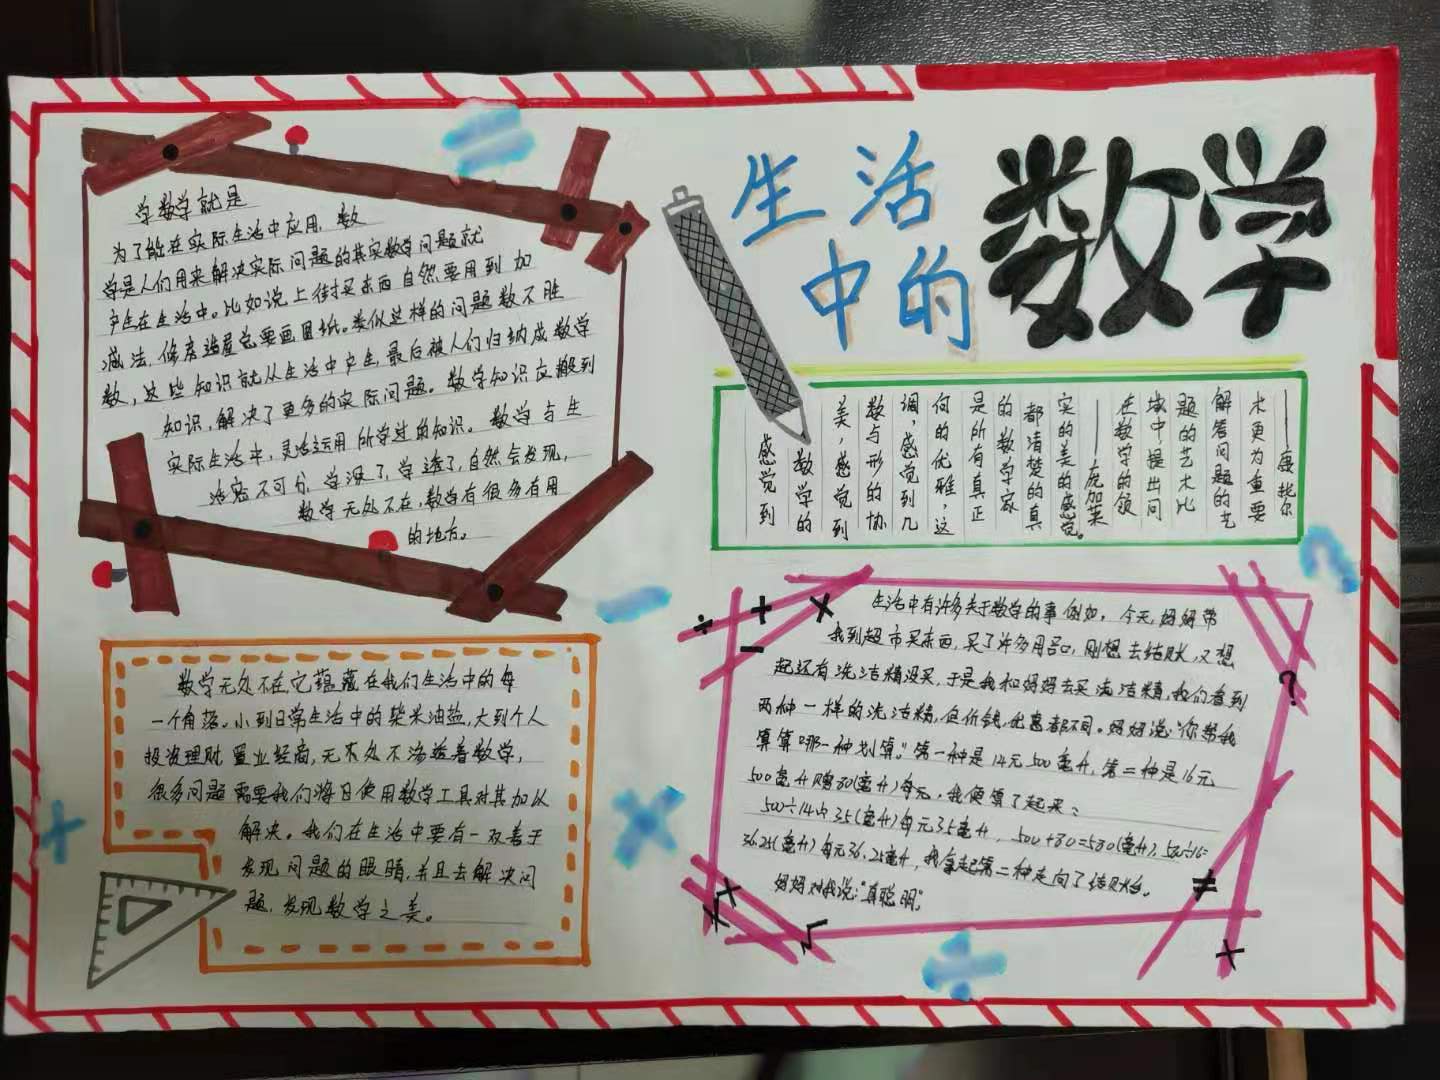 生活
中的
数学
学数学就是
为了能在实际生活中应用，数
学是人们用来解决实际问题的其实数学问题就
产生在生活中。比如说上街买东西自然要用到加
减法，修房造屋总要画图纸。类似这样的问题数不胜
数，这些知识就从生活中产生，最后被人们归纳成数学
知识，解决了更多的实际问题。数学知识应搬到
实际生活中，灵活运用所学过的知识。数学与生
活密不可分，学深了，学透了，自然会发现，
数学无处不在，数学有很多有用
的地方。
——康托尔
术更为重要
解答问题的艺
题的艺术比
域中提出问
在数学的领
——庞加莱
实的美的感觉。
都清楚的真
的数学家
是所有真正
何的优雅，这
调，感觉到几
数与形的协
美，感觉到
数学的
感觉到
数学无处不在，它蕴藏在我们生活中的每
一个角落。小到日常生活中的柴米油盐，大到个人
投资理财，置业经商，无不处不渗透着数学，
很多问题需要我们将日使用数学工具对其加以
解决。我们在生活中要有一双善于
发现问题的眼睛，并且去解决问
题，发现数学之美。
生活中有许多关于数学的事例如，今天，妈妈带
我到超市买东西，买了许多用品，刚想去结账，又想
起还有洗洁精没买，于是我和妈妈去买洗洁精，我们看到
两种一样的洗洁精，但价钱，优惠都不同。妈妈说：“你帮我
算算哪一种划算。”第一种是14元500毫升，第二种是16元
500毫升赠80(毫升)每元，我便算了起来：
500÷14≈35(毫升)每元35毫升，500+80=580(毫升)，580÷16=
36.25(毫升)每元36.25毫升，我拿起第二种走向了结账台。
妈妈对我说：“真聪明。”